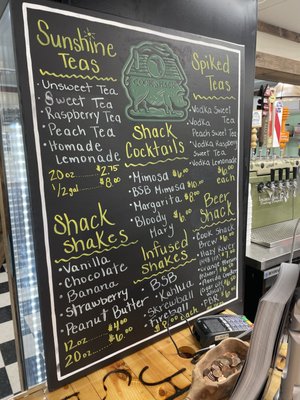 Sunshine
Teas
• Unsweet Tea
• Sweet Tea
• Raspberry Tea
• Peach Tea
• Homade
Lemonade
20 oz ........ $2.75
1/2 gal ........ $8.00
Shack
shakes
• Vanilla
• Chocolate
• Banana
• Strawberry
• Peanut Butter
12oz ........ $4.00
20oz ........ $6.00
Shack
Cocktails
• Mimosa $6.00
• BSB Mimosa $10.00
• Margarita $8.00
• Bloody $6.00
Mary
Infused
shakes
• BSB
• Kahlua
• Skrewball
• Fireball
$ Each
Spiked
Teas
• Vodka Sweet
• Vodka Tea
• Peach Sweet
Tea
• Vodka Raspberry
Sweet Tea
• Vodka Lemonade
$6.00
each
Beer
Shack
• Cook Shack
Brew $6
• Hazy River
• PBR $